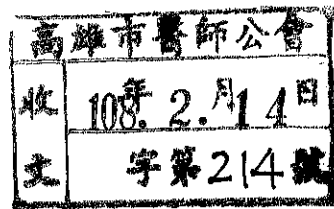 高雄市醫師公會
收文
108年2.月14日
字第214號